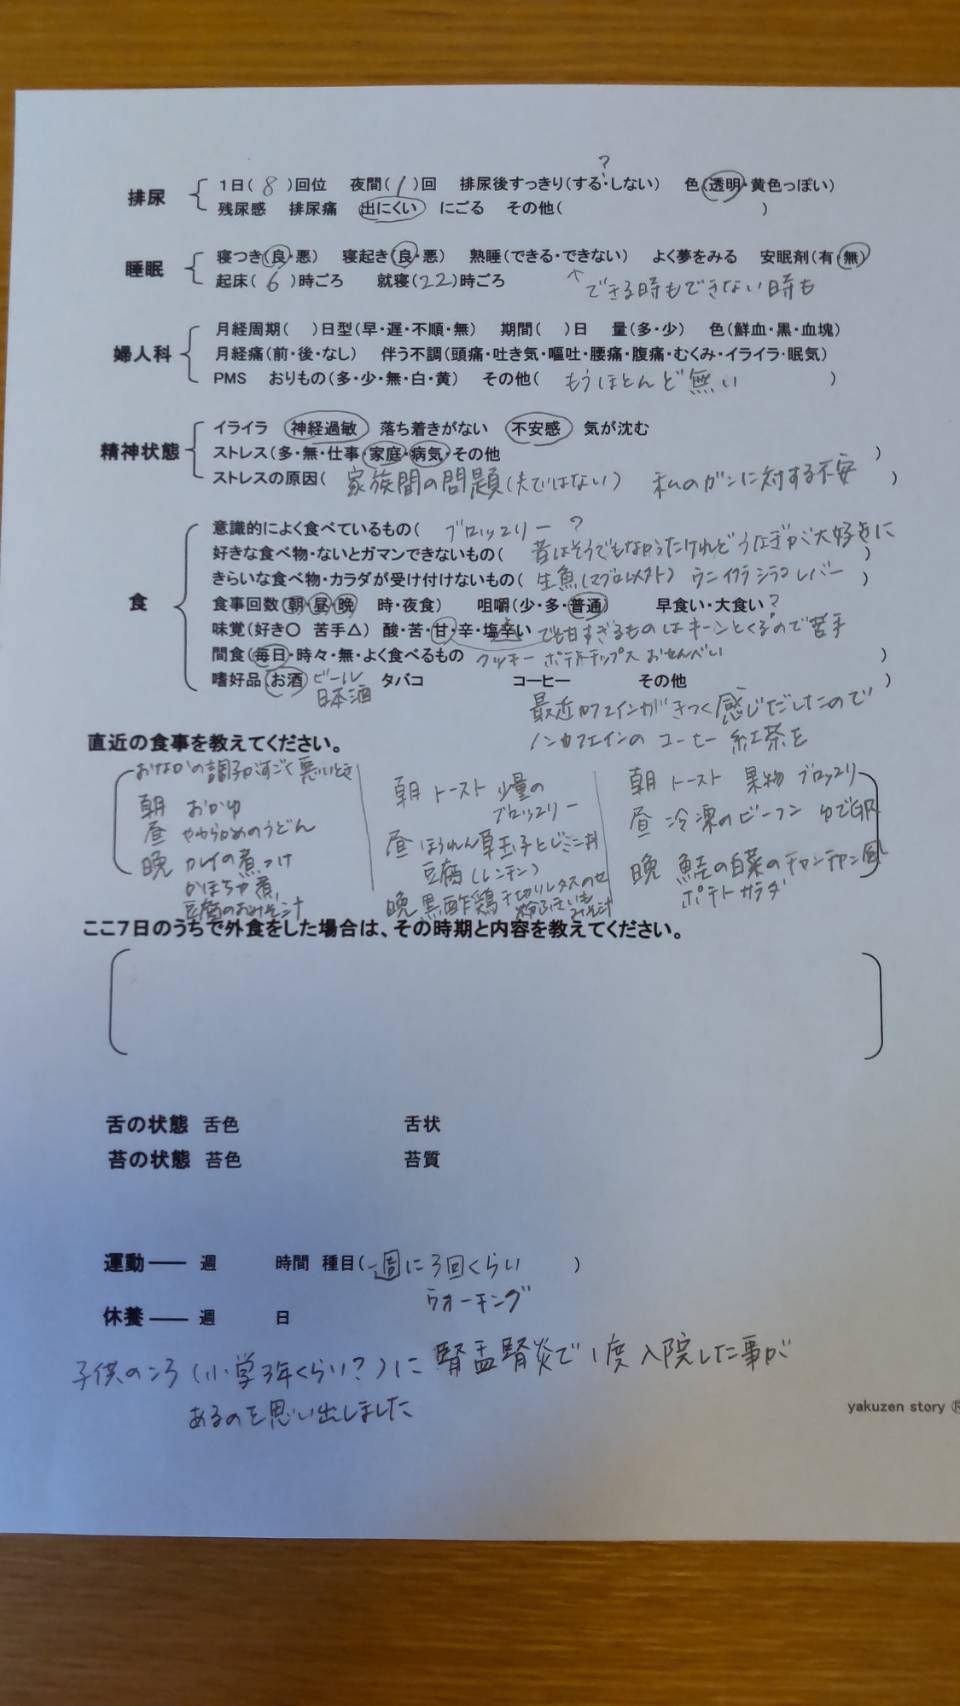 ?
排尿 1日( 8 )回位 夜間( 1 )回 排尿後すっきり(する・しない) 色(透明・黄色っぽい)
残尿感 排尿痛 出にくい にごる その他( )
睡眠 寝つき(良・悪) 寝起き(良・悪) 熟睡(できる・できない) よく夢をみる 安眠剤(有・無)
起床( 6 )時ごろ 就寝(22)時ごろ ↑できる時もできない時も
婦人科 月経周期( )日型(早・遅・不順・無) 期間( )日 量(多・少) 色(鮮血・黒・血塊)
月経痛(前・後・なし) 伴う不調(頭痛・吐き気・嘔吐・腰痛・腹痛・むくみ・イライラ・眠気)
PMS おりもの(多・少・無・白・黄) その他( もうほとんど無い )
精神状態 イライラ 神経過敏 落ち着きがない 不安感 気が沈む
ストレス(多・無・仕事・家庭・病気・その他 )
ストレスの原因( 家族間の問題(夫ではない) 私のガンに対する不安 )
食 意識的によく食べているもの( ブロッコリー ? )
好きな食べ物・ないとガマンできないもの( 昔はそうでもなかったけれどうなぎが大好きに )
きらいな食べ物・カラダが受け付けないもの( 生魚(マグロ以外) ウニ イクラ シラコ レバー )
食事回数(朝・昼・晩 時・夜食) 咀嚼(少・多・普通) 早食い・大食い ?
味覚(好き〇 苦手△) 酸・苦・甘・辛・塩辛い でも甘すぎるものはキーンとくるので苦手
間食(毎日・時々・無・よく食べるもの クッキー ポテトチップス おせんべい )
嗜好品(お酒 ビール 日本酒 タバコ コーヒー その他 )
最近カフェインがきつく感じだしたので
ノンカフェインの コーヒー 紅茶を
直近の食事を教えてください。
おなかの調子がすごく悪いとき
朝 おかゆ
昼 やわらかめのうどん
晩 カレイの煮つけ
かぼちゃ煮
豆腐のおみそ汁
朝 トースト 少量の
ブロッコリー
昼 ほうれん草玉子とじミニ丼
豆腐(レンチン)
晩 黒酢鶏 千切りレタスのせ
みそ汁
朝 トースト 果物 ブロッコリー
昼 冷凍のビーフン ゆで卵
晩 鮭の白菜のチャンチャン風
ポテトサラダ
ここ7日のうちで外食をした場合は、その時期と内容を教えてください。
舌の状態 舌色 舌状
苔の状態 苔色 苔質
運動―― 週 時間 種目(週に3回くらい )
ウォーキング
休養―― 週 日
子供のころ(小学3年くらい?)に 腎盂腎炎で1度入院した事が
あるのを思い出しました
yakuzen story ®